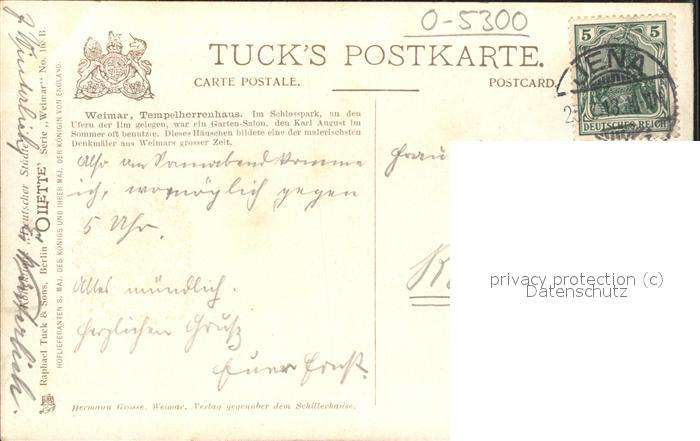 O-5300
TUCK'S POSTKARTE.
CARTE POSTALE.
POSTCARD.
5 5
DEUTSCHES REICH
JENA
Weimar, Tempelherrenhaus. Im Schlosspark, an den
Ufern der Ilm gelegen, war ein Garten-Salon, den Karl August im
Sommer oft benutzte. Dieses Häuschen bildete eine der malerischsten
Denkmäler aus Weimars grosser Zeit.
Also am Sonnabend komme
ich, womöglich gegen
5 Uhr.
Alles mündlich.
Herzlichen Gruß
Euer Ernst.
Frau
Hermann Grosse, Weimar, Verlag gegenüber dem Schillerhause.
Raphael Tuck & Sons, Berlin "OILETTE" Serie „Weimar" No. 116 B.
HOFLIEFERANTEN S. MAJ. DES KÖNIGS UND IHRER MAJ. DER KÖNIGIN VON ENGLAND.
privacy protection (c)
Datenschutz